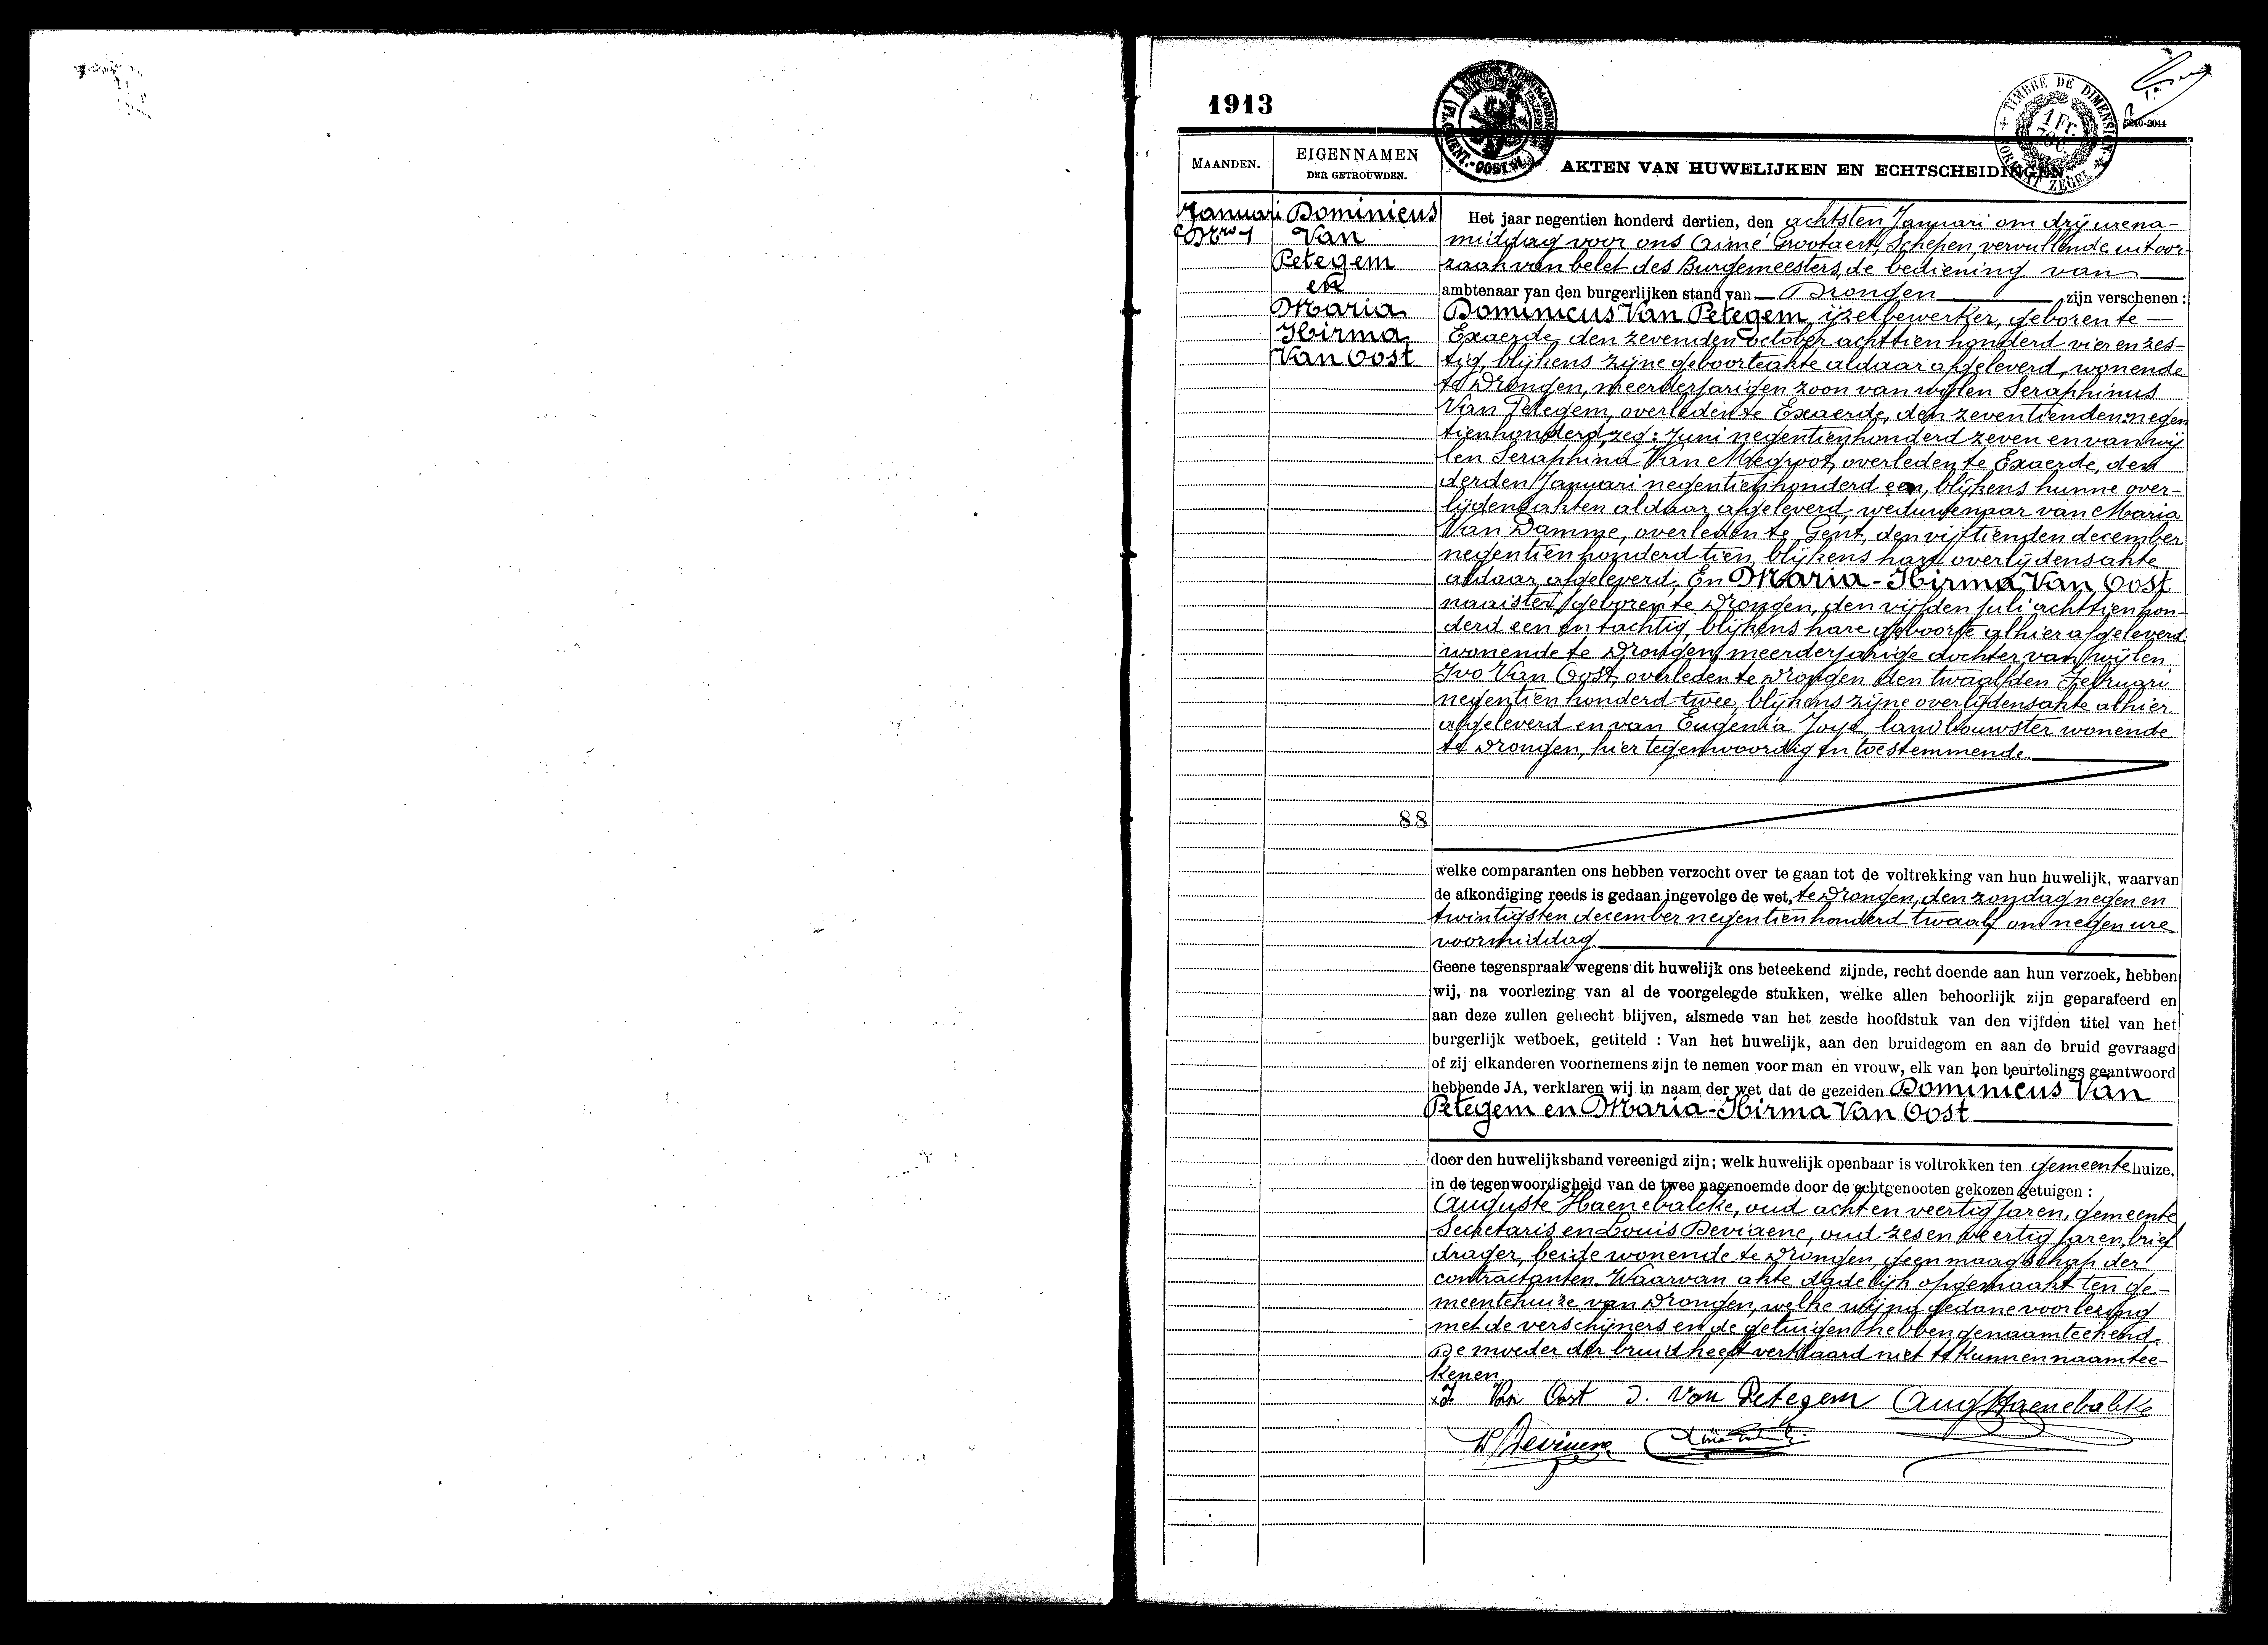 1913
TIMBRE DE DIMENSION
1 Fr.
70 c.
FORMAAT ZEGEL
MAANDEN.
EIGENNAMEN
DER GETROUWDEN.
AKTEN VAN HUWELIJKEN EN ECHTSCHEIDINGEN
Januari
Nro 1
Dominicus
Van
Petegem
en
Maria
Hirma
Van Oost
88
Het jaar negentien honderd dertien, den achtsten Januari om drij ure na-
middag voor ons Aimé Grootaert, Schepen, vervullende uit oor-
zaak van belet des Burgemeesters, de bediening van
ambtenaar van den burgerlijken stand van Drongen zijn verschenen :
Dominicus Van Petegem, ijzerbewerker, geboren te
Exaerde, den zevenden october achttien honderd vier en zes-
tig, blijkens zijne geboorteakte aldaar afgeleverd, wonende
te Drongen, meerderjarigen zoon van wijlen Seraphinus
Van Petegem, overleden te Exaerde, den zeventienden: negen
tienhonderd, zeg: Juni negentienhonderd zeven en van wij
len Seraphina Van Megroot, overleden te Exaerde, den
derden Januari negentienhonderd een, blijkens hunne over-
lijdensakten aldaar afgeleverd, weduwenaar van Maria
Van Damme, overleden te Gent, den vijftienden december
negentien honderd tien, blijkens hare overlijdensakte
aldaar afgeleverd, En Maria-Hirma Van Oost
naaister, geboren te Drongen, den vijfden juli achttien hon-
derd een en tachtig, blijkens hare geboorte alhier afgeleverd
wonende te Drongen, meerderjarige dochter van wijlen
Ivo Van Oost, overleden te Drongen den twaalfden Februari
negentien honderd twee, blijkens zijne overlijdensakte alhier
afgeleverd en van Eugenia Joye, landbouwster wonende
te Drongen, hier tegenwoordig en toestemmende.
welke comparanten ons hebben verzocht over te gaan tot de voltrekking van hun huwelijk, waarvan
de afkondiging reeds is gedaan ingevolge de wet, te Drongen, den zondag negen en
twintigsten december negentien honderd twaalf om negen ure
voormiddag
Geene tegenspraak wegens dit huwelijk ons beteekend zijnde, recht doende aan hun verzoek, hebben
wij, na voorlezing van al de voorgelegde stukken, welke allen behoorlijk zijn geparafeerd en
aan deze zullen gehecht blijven, alsmede van het zesde hoofdstuk van den vijfden titel van het
burgerlijk wetboek, getiteld : Van het huwelijk, aan den bruidegom en aan de bruid gevraagd
of zij elkanderen voornemens zijn te nemen voor man en vrouw, elk van hen beurtelings geantwoord
hebbende JA, verklaren wij in naam der wet dat de gezeiden Dominicus Van
Petegem en Maria-Hirma Van Oost
door den huwelijksband vereenigd zijn; welk huwelijk openbaar is voltrokken ten gemeentehuize,
in de tegenwoordigheid van de twee nagenoemde door de echtgenooten gekozen getuigen :
Auguste Haenebalcke, oud acht en veertig jaren, gemeente
Secretaris en Louis Deviaene, oud zes en veertig jaren, brief
drager, beide wonende te Drongen, geen maagschap der
contractanten. Waarvan akte dadelijk opgemaakt ten ge-
meentehuize van Drongen, welke wij na gedane voorlezing
met de verschijners en de getuigen hebben genaamteekend.
De moeder der bruid heeft verklaard niet te kunnen naamtee-
kenen
Van Oost D. Van Petegem Aug Haenebalcke
L Deviaene